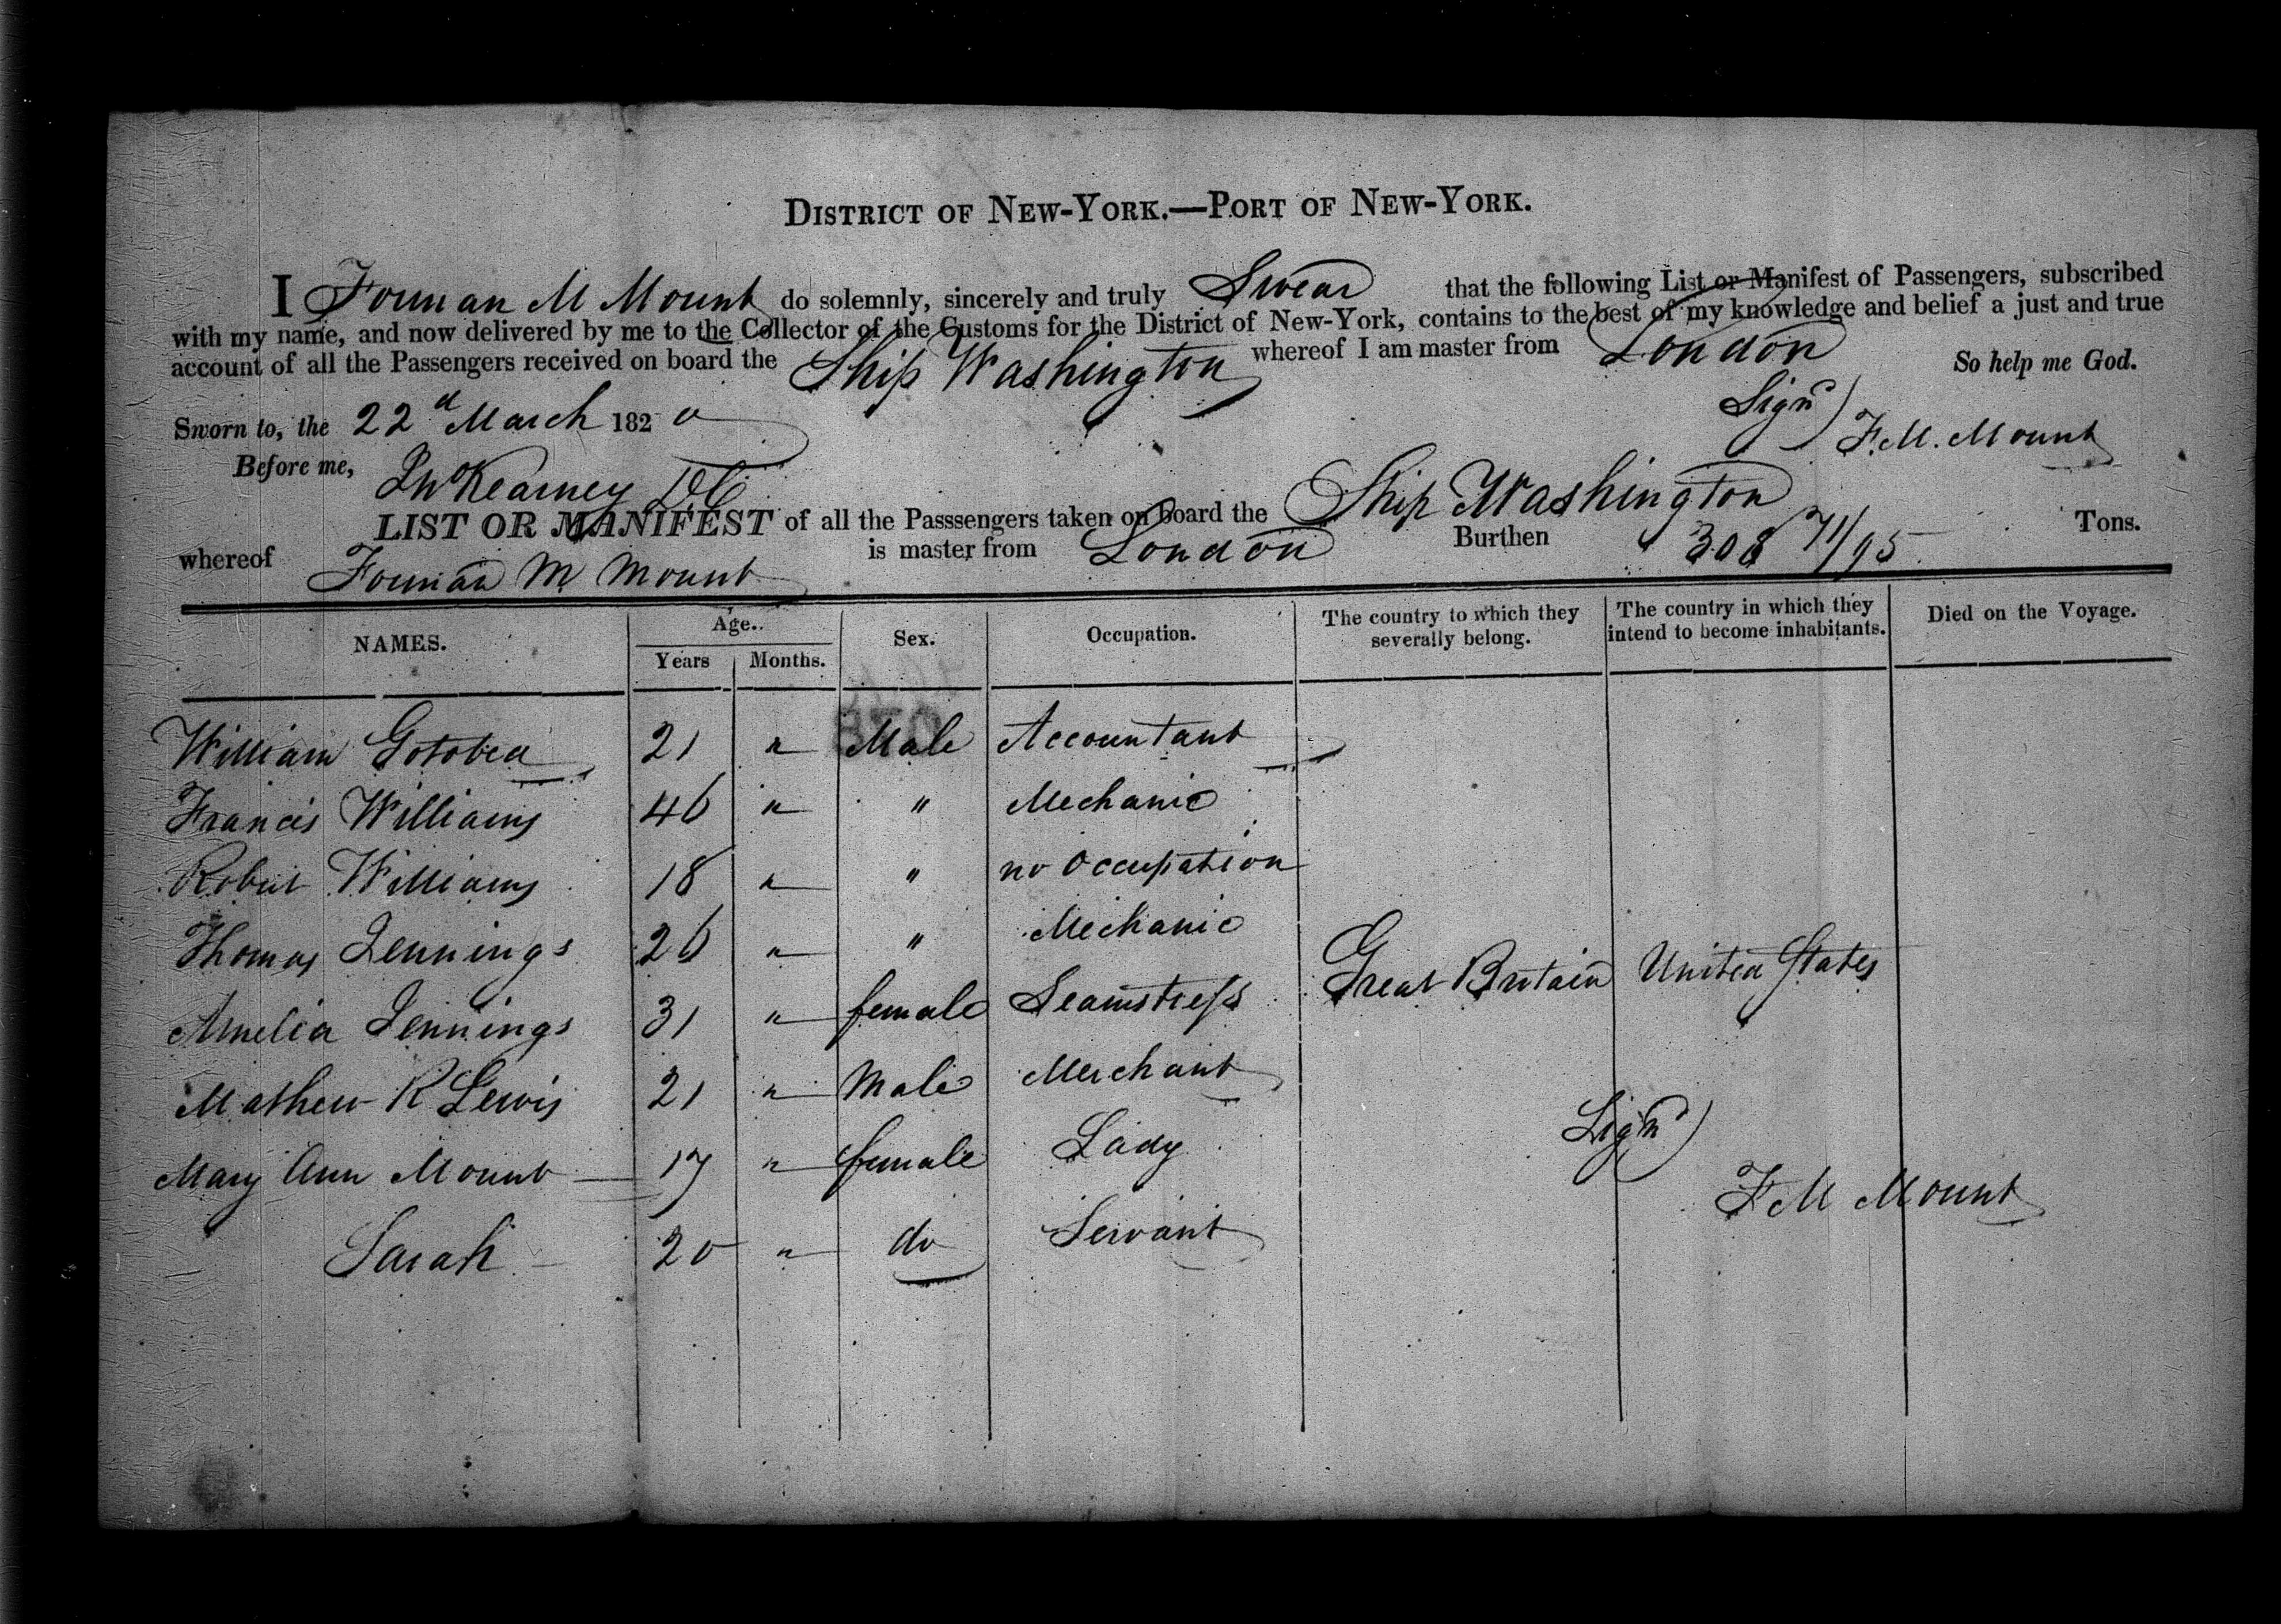 DISTRICT OF NEW-YORK.—PORT OF NEW-YORK.
I Forman M Mount do solemnly, sincerely and truly Swear that the following List or Manifest of Passengers, subscribed
with my name, and now delivered by me to the Collector of the Customs for the District of New-York, contains to the best of my knowledge and belief a just and true
account of all the Passengers received on board the Ship Washington whereof I am master from London So help me God.
Sworn to, the 22d March 1820 Signd) F.M. Mount
Before me, Kearney DC
LIST OR MANIFEST of all the Passsengers taken on board the Ship Washington
whereof Forman M Mount is master from London Burthen 308 71/95 Tons.
NAMES. Age.. Years Months. Sex. Occupation. The country to which they severally belong. The country in which they intend to become inhabitants. Died on the Voyage.
William Gotobed 21 " Male Accountant
Francis Williams 46 " " Mechanic
Robert Williams 18 " " no occupation
Thomas Jennings 26 " " Mechanic
Amelia Jennings 31 " female Seamstress Great Britain United States
Mathew R Lewis 21 " Male Merchant
Mary Ann Mount 17 " female Lady
Signd) F M Mount
Sarah 20 " do Servant